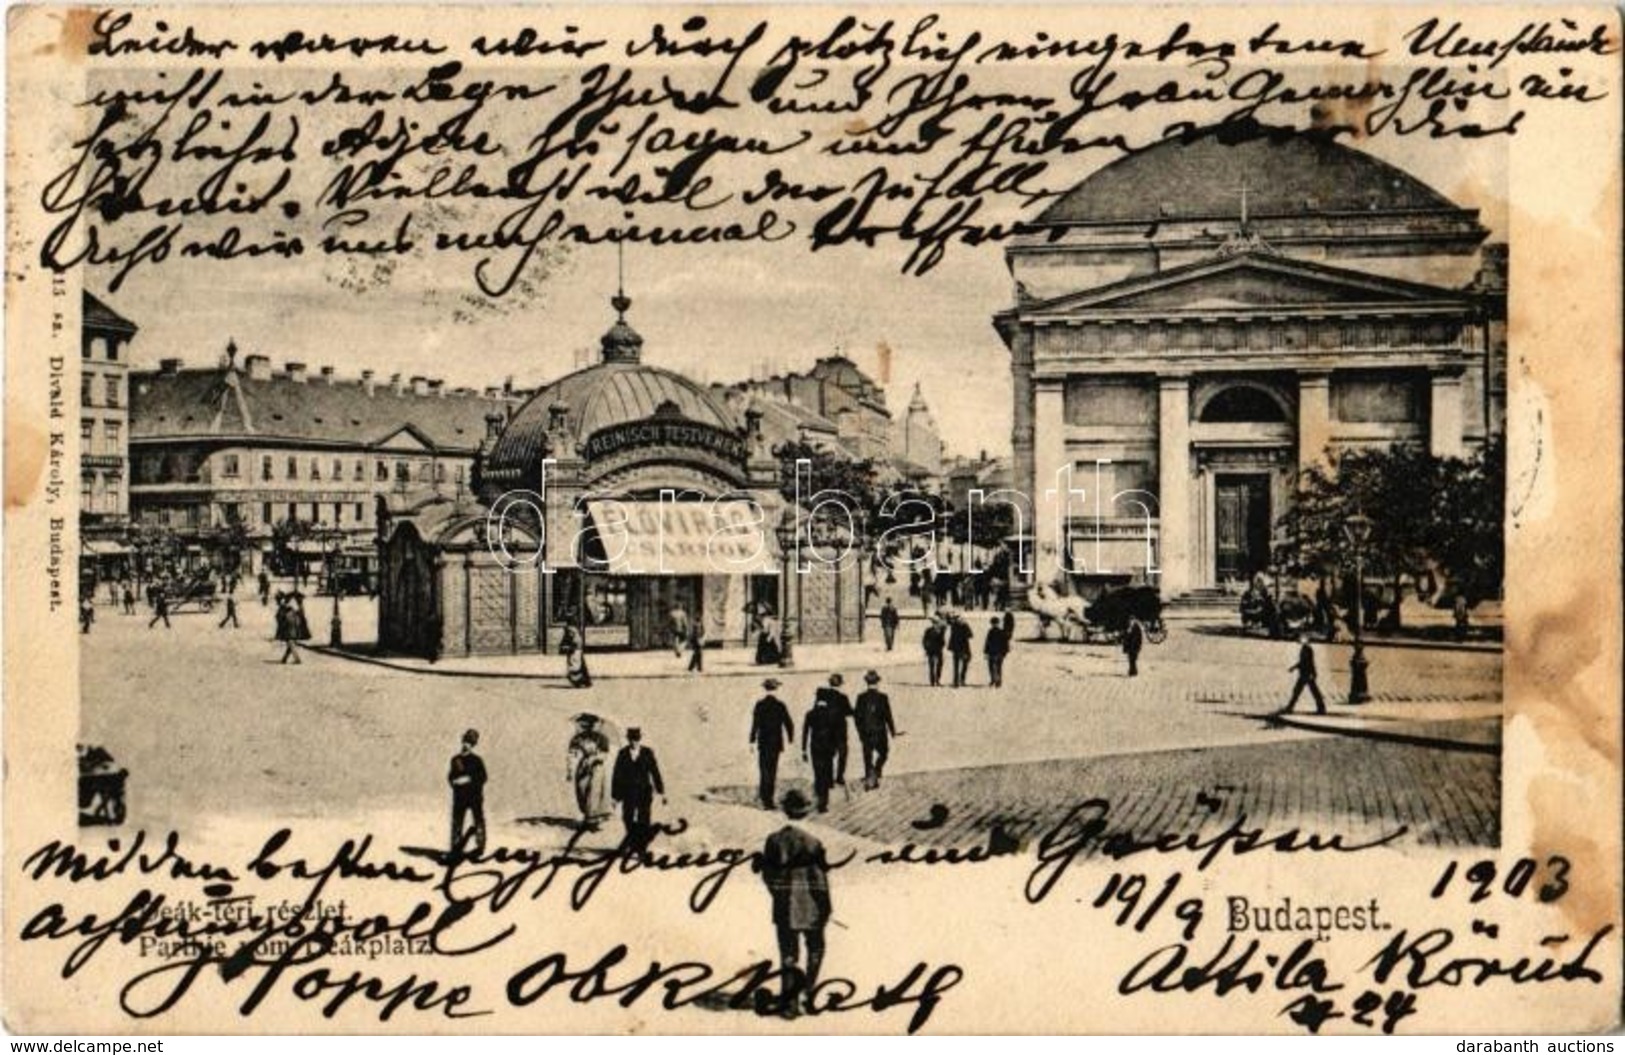 Leider waren wir durch plötzlich eingetretene Umstände
nicht in der Lage Ihnen und Ihrer Frau Gemahlin ein
herzliches Adjeu zu sagen und thuen wir dies
hiemit. Vielleicht will der Zufall,
dass wir uns noch einmal treffen.
15 sz. Divald Károly, Budapest.
REINISCH TESTVÉREK
ÉLŐVIRÁG
CSARNOK
darabanth
Mit den besten Empfehlungen und Grüssen
1903
19/9
achtungsvoll
Deák-téri részlet.
Parthie vom Deákplatz.
Budapest.
Hoppe
Attila Körút
24
darabanth auctions
https://www.darabanth.com